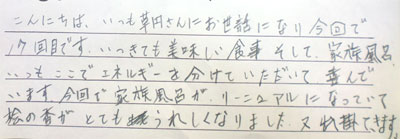 こんにちは、いつも草円さんにお世話になり今回で
17回目です、いつきても美味しい食事 そして、家族風呂、
いつもここでエネルギーを分けていただいて 喜んで
います 今回で家族風呂が、リーニュアルになっていて
桧の香がとてもうれしくなりました、又出掛てきます。